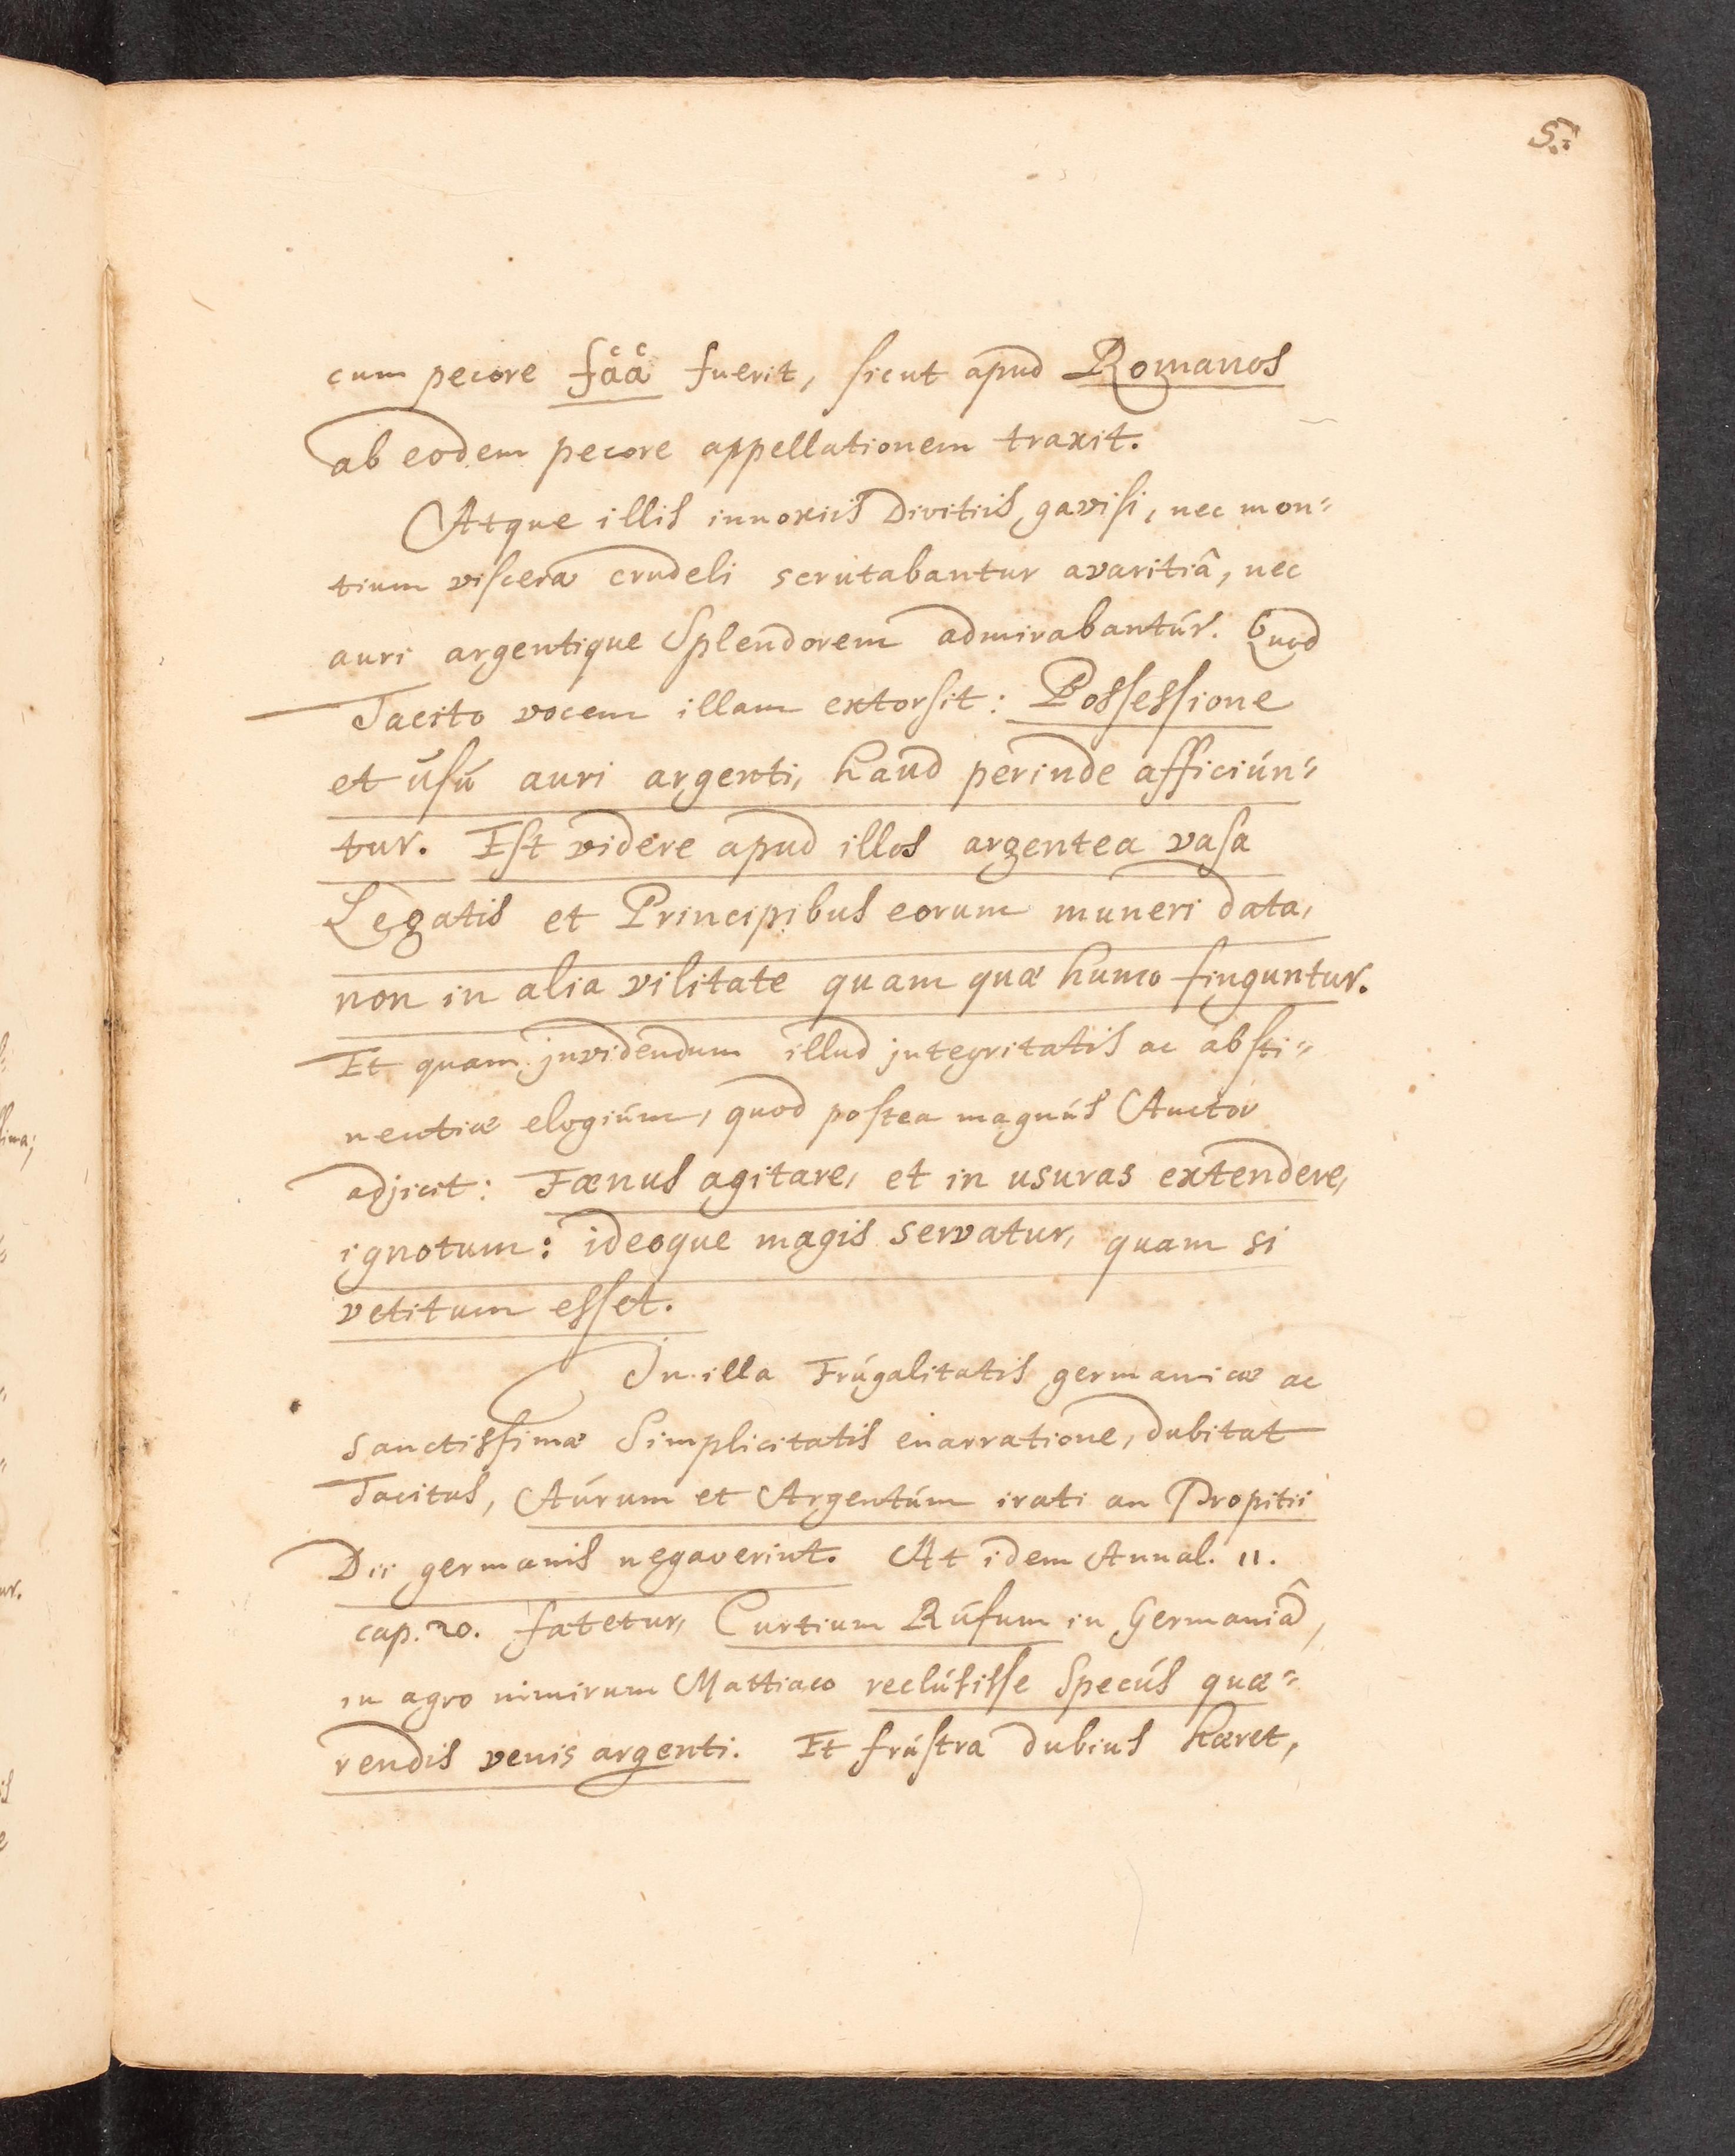 5.
cum pecore fåå fuerit, sicut apud Romanos
ab eodem pecore appellationem traxit.
Atque illis innoxiis Divitiis gavisi, nec mon=
tium viscera crudeli scrutabantur avaritiâ, nec
auri argentique Splendorem admirabantúr. Quod
Tacito vocem illam extorsit: Possessione
et úsú auri argenti, haud perinde afficiún=
tur. Est videre apud illos argentea vasa
Legatis et Principibus eorum muneri data,
non in alia vilitate quam quæ humo finguntur.
Et quam jnvidendum illud jntegritatis ac absti=
nentiæ elogiúm, quod postea magnús Auctor
adjicit: Fænus agitare, et in usuras extendere,
ignotum: ideoque magis servatur, quam si
vetitum esset.
In illa Frúgalitatis germanicæ ac
sanctissimæ Simplicitatis enarratione, dubitat
Tacitus, Aúrum et Argentúm irati an Propitii
Dii germanis negaverint. At idem Annal. 11.
cap. 20. fatetur, Curtium Rúfum in Germaniâ,
in agro nimirum Mattiaco reclúsisse Specús quæ=
rendis venis argenti. Et frústra dubius hæret,